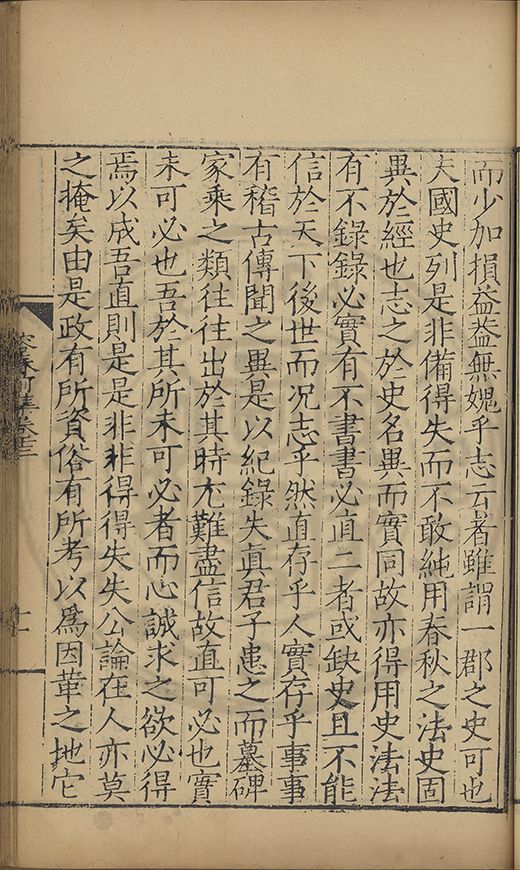 而少加損益蓋無媿乎志云者雖謂一郡之史可也
夫國史列是非備得失而不敢純用春秋之法史固
異於經也志之於史名異而實同故亦得用史法法
有不錄錄必實有不書書必直二者或缺史且不能
信於天下後世而况志乎然直存乎人實存乎事事
有稽古傳聞之異是以紀錄失真君子患之而墓碑
家乘之類往往出於其時尢難盡信故直可必也實
未可必也吾於其所未可必者而心誠求之欲必得
焉以成吾直則是是非非得得失失公論在人亦莫
之掩矣由是政有所資俗有所考以爲因革之地它